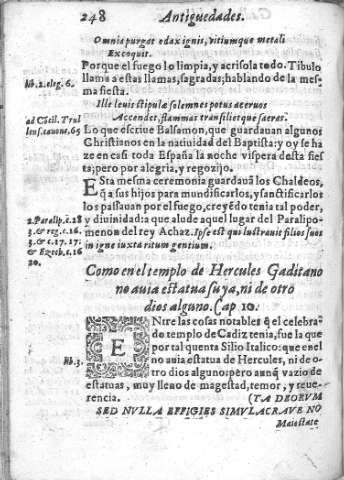 248 Antiguedades.
Omnia purgat edax ignis, vitiumque metali
Excoquit.
Porque el fuego lo limpia, y acrisola todo. Tibulo
llama a estas llamas, sagradas; hablando de la mes-
lib. 2. eleg. 6.
ma fiesta.
Ille leuis stipulæ solemnes potus aceruos
ad Cõcil. Trul
Accendet, flammas transilietque sacras.
lens. canone. 65
Lo que escriue Balsamon, que guardauan algunos
Christianos en la natiuidad del Baptista: y oy se ha
ze en casi toda España la noche vispera desta fies
ta; pero por alegria, y regozijo.
Esta mesma ceremonia guardauã los Chaldeos,
q̃ a sus hijos para mundificarlos, y sanctificarlos
los passauan por el fuego, creyẽdo tenia tal poder,
2. Paralip. c. 28
y diuinidad: a que alude aquel lugar del Paralipo-
3. & reg. c. 16.
menon del rey Achaz. Ipse est qui lustrauit filios suos
3. & c. 17. 17.
in igne iuxta ritum gentium.
& Ezech. c. 16
20.
Como en el templo de Hercules Gaditano
no auia estatua suya, ni de otro
dios alguno. Cap 10.
ENtre las cosas notables q̃ el celebra
do templo de Cadiz tenia, fue la que
por tal quenta Silio Italico: que en el
lib. 3.
no auia estatua de Hercules, ni de o-
tro dios alguno: pero aunq̃ vazio de
estatuas, muy lleno de magestad, temor, y reue-
rencia. (TA DEORVM
SED NVLLA EFFIGIES SIMVLACRAVE NO
Maiestate